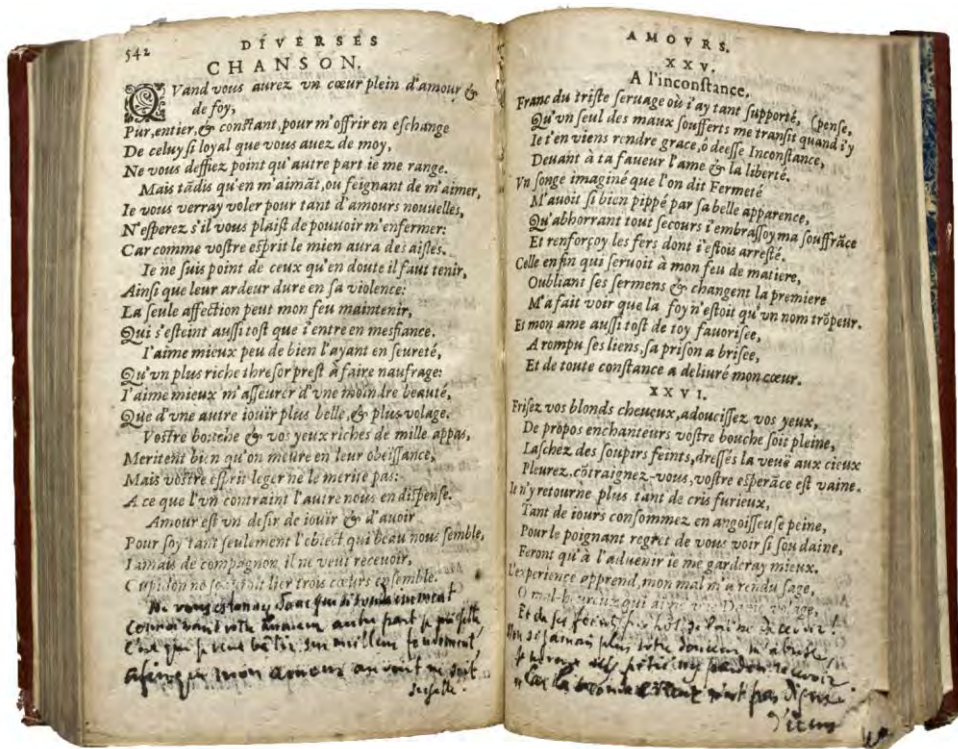 542
DIVERSES
CHANSON.
QVand vous aurez vn cœur plein d'amour &
de foy,
Pur, entier, & constant, pour m'offrir en eschange
De celuy si loyal que vous auez de moy,
Ne vous deffiez point qu'autre part ie me range.
Mais tãdis qu'en m'aimãt, ou feignant de m'aimer,
Ie vous verray voler pour tant d'amours nouuelles,
N'esperez s'il vous plaist de pouuoir m'enfermer:
Car comme vostre esprit le mien aura des aisles.
Ie ne suis point de ceux qu'en doute il faut tenir,
Ainsi que leur ardeur dure en sa violence:
La seule affection peut mon feu maintenir,
Qui s'esteint aussi tost que i'entre en mesfiance.
I'aime mieux peu de bien l'ayant en seureté,
Qu'vn plus riche thresor prest à faire naufrage:
I'aime mieux m'asseurer d'vne moindre beauté,
Que d'vne autre iouir plus belle, & plus volage.
Vostre bouche & vos yeux riches de mille appas,
Meritent bien qu'on meure en leur obeissance,
Mais vostre esprit leger ne le merite pas:
A ce que l'vn contraint l'autre nous en dispense.
Amour est vn desir de iouir & d'auoir
Pour soy tant seulement l'obiect qui beau nous semble,
Iamais de compagnon il ne veut receuoir,
Cupidon ne lier trois cœurs ensemble.
Ne vous
autre part je
C'est que je veux bâtir sur meilleur fondement,
mon amour au vent ne soit
AMOVRS.
XXV.
A l'inconstance.
Franc du triste seruage où i'ay tant supporté, (pense,
Qu'vn seul des maux soufferts me transit quand i'y
Ie t'en viens rendre grace, ô deesse Inconstance,
Deuant à ta faueur l'ame & la liberté.
Vn songe imaginé que l'on dit Fermeté
M'auoit si bien pippé par sa belle apparence,
Qu'abhorrant tout secours i'embrassoy ma souffrãce
Et renforçoy les fers dont i'estois arresté.
Celle en fin qui seruoit à mon feu de matiere,
Oubliant ses sermens & changent la premiere
M'a fait voir que la foy n'estoit qu'vn nom trõpeur.
Et mon ame aussi tost de toy fauorisee,
A rompu ses liens, sa prison a brisee,
Et de toute constance a deliuré mon cœur.
XXVI.
Frisez vos blonds cheueux, adoucissez vos yeux,
De propos enchanteurs vostre bouche soit pleine,
Laschez des soupirs feints, dressés la veuë aux cieux
Pleurez, cõtraignez-vous, vostre esperãce est vaine.
Ie n'y retourne plus, tant de cris furieux,
Tant de iours consommez en angoisseuse peine,
Pour le poignant regret de vous voir si soudaine,
Feront qu'à l'aduenir ie me garderay mieux.
L'experience apprend, mon mal m'a rendu sage,
O mal-heureux qui
jamais plus votre douceur m'abuse
pardon